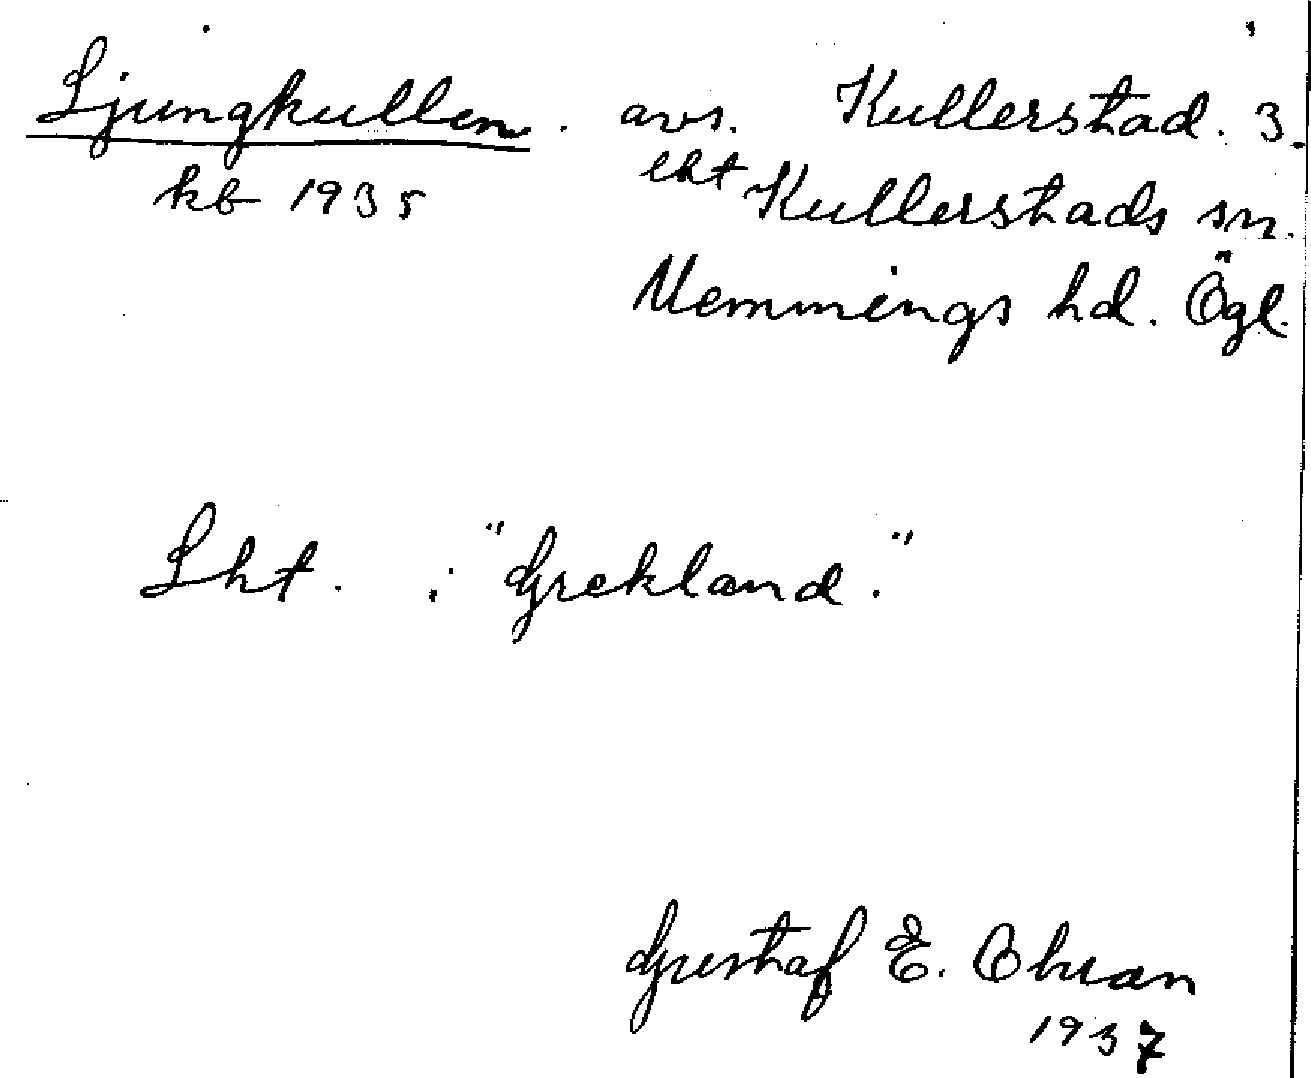 Ljungkullen. avs. Kullerstad. 3.
kb 1935 lht Kullerstads sn.
Memmings hd. Ögl.
Lht. : "Grekland."
Gustaf E. Ohran
1937